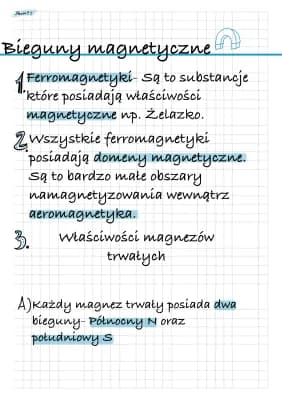 Bieguny magnetyczne
1. Ferromagnetyki- Są to substancje
które posiadają właściwości
magnetyczne np. Żelazko.
2. Wszystkie ferromagnetyki
posiadają domeny magnetyczne.
Są to bardzo małe obszary
namagnetyzowania wewnątrz
aeromagnetyka.
3. Właściwości magnezów
trwałych
A) Każdy magnez trwały posiada dwa
bieguny- Północny N oraz
południowy S